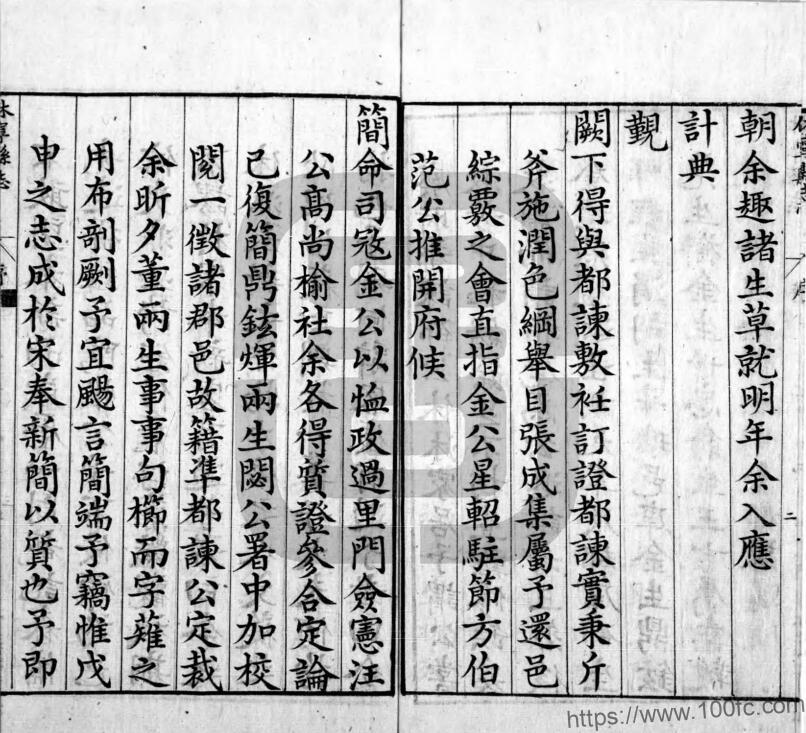 朝余趣諸生草就明年余入應
計典
覲
闕下得與都諫敷衽訂證都諫實秉斤
斧施潤色綱舉目張成集屬予還邑
綜覈之會直指金公星軺駐節方伯
范公推開府候
簡命司寇金公以恤政過里門僉憲汪
公高尚榆社余各得質證參合定論
已復簡鼎鉉煇兩生閟公署中加校
閱一徵諸郡邑故籍準都諫公定裁
余昕夕董兩生事事句櫛而字薙之
用布剞劂予宜颺言簡端予竊惟戊
申之志成於宋奉新簡以質也予即
休寧縣志
序
二
https://www.100fc.com